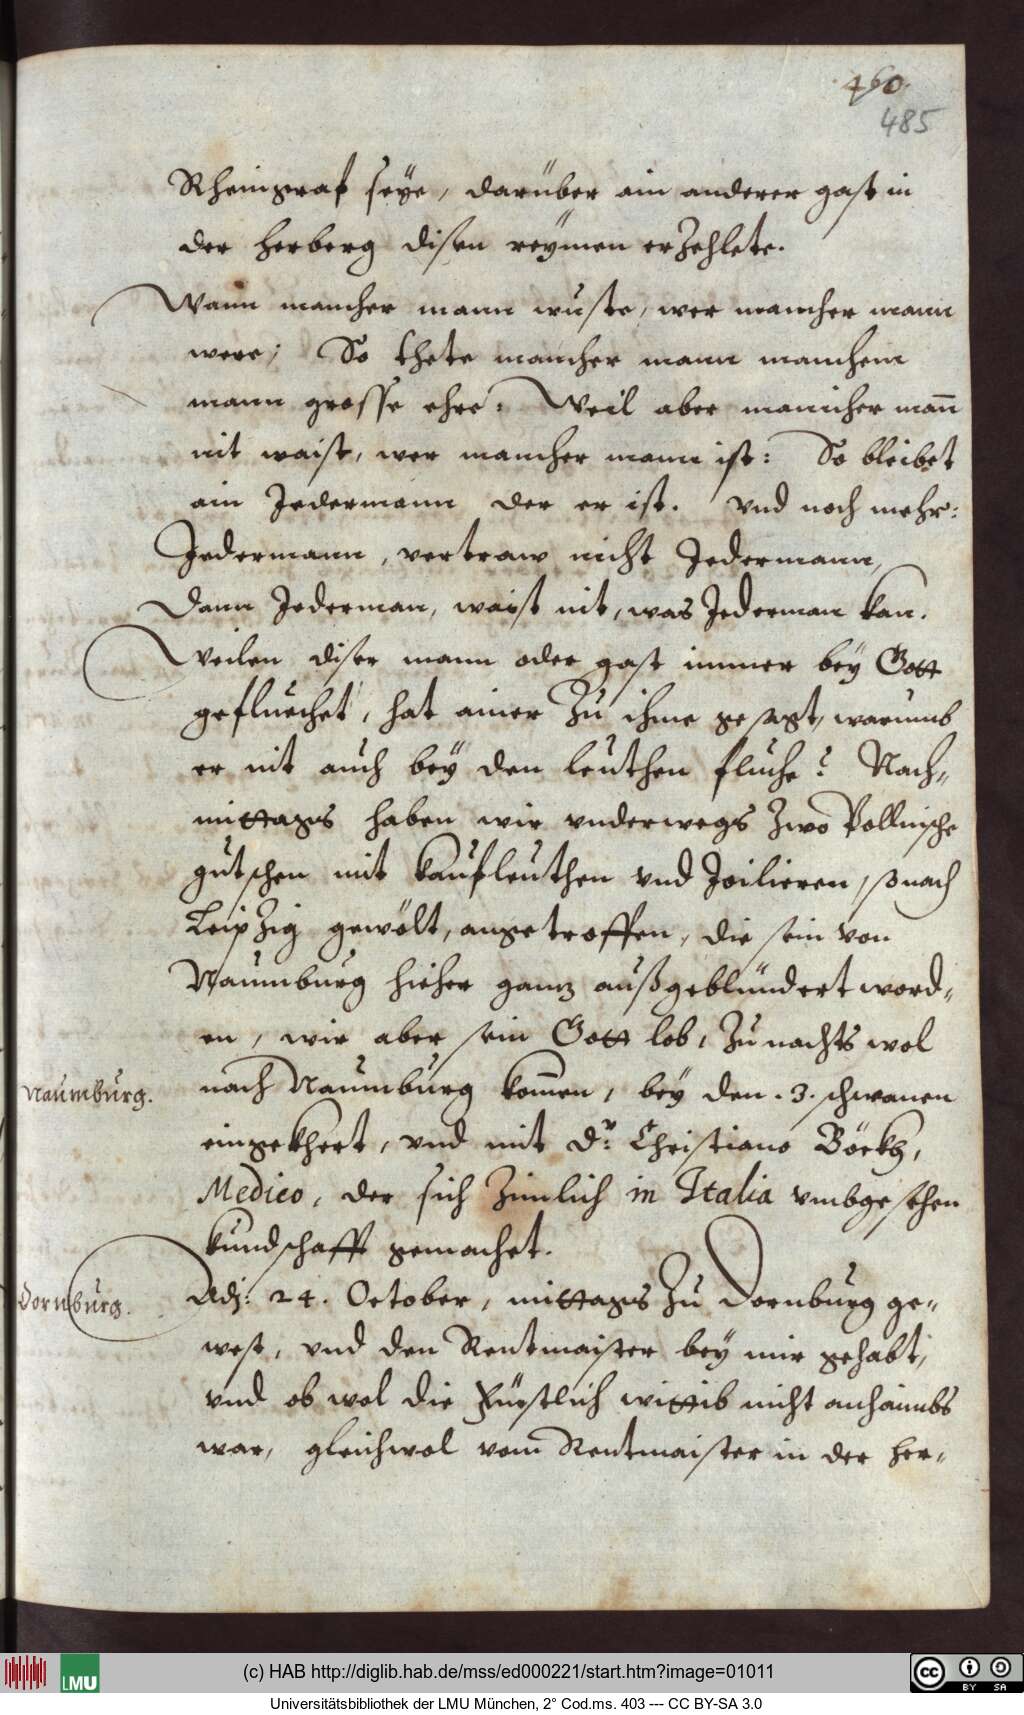 460.
485
Rheingraf seÿe, darüber ain anderer gast in
der herberg disen reÿmen erzehlete.
Wann mancher mann wuste, wer mancher mann
were; So thete mancher mann manchem
mann grosse ehre: Weil aber mannicher mañ
nit waist, wer mancher mann ist: So bleibet
ain Jedermann der er ist. Vnd noch mehr:
Jedermann, vertraw nicht Jedermann,
Dann Jederman, waist nit, was Jederman kan.
Weilen diser mann oder gast immer beÿ Gott
gefluechet, hat ainer Zu ihme gesagt, warumb
er nit auch beÿ den leuthen fluche? Nach-
mittags haben wir vnderwegs Zwo Pollnische
gutschen mit kaufleuthen vnd Joilieren, so nach
LeipZig gewölt, angetroffen, die sein von
Naumburg hieher ganz außgeblündert word-
en, wir aber sein Gott lob, Zu nachts wol
Naumburg.
nach Naumburg kom̃en, beÿ den .3. schwanen
eingekhert, vnd mit Dr. Christiano Böckh,
Medico, der sich Zimlich in Italia vmbgesehen
kundschafft gemachet.
Dornburg.
Adj: 24. October, mittags Zu Dornburg ge-
west, vnd den Rentmaister beÿ mir gehabt,
vnd ob wol die Fürstlich wittib nicht anhaimbs
war, gleichwol vom Rentmaister in der her-
(c) HAB http://diglib.hab.de/mss/ed000221/start.htm?image=01011
LMU
cc BY SA
Universitätsbibliothek der LMU München, 2° Cod.ms. 403 --- CC BY-SA 3.0